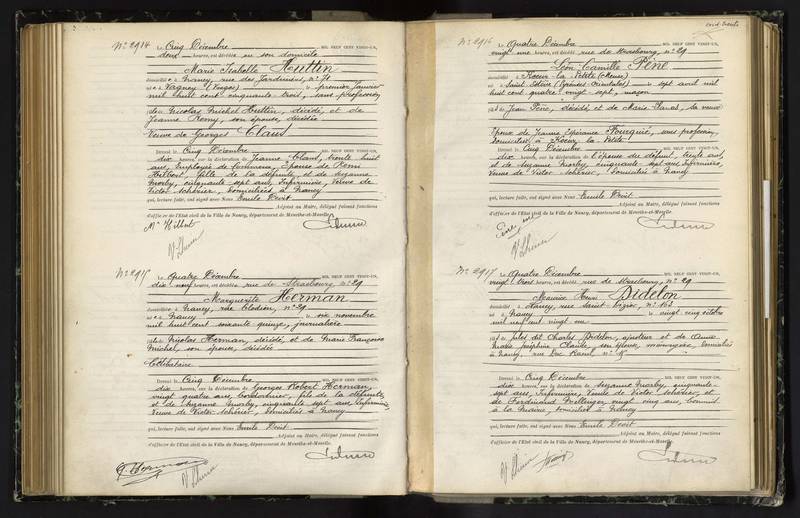 N° 2914 Le Cinq Décembre MIL NEUF CENT VINGT-UN,
deux heures, est décédée en son domicile
Marie Isabelle Huttin
domiciliée à Nancy, rue des Jardiniers, n° 71
née à Vagney (Vosges) le premier Janvier
mil huit cent cinquante trois, sans profession
de Nicolas Michel Huttin, décédé, et de
Jeanne Remy, son épouse, décédée
Veuve de Georges Claus
Dressé le Cinq Décembre MIL NEUF CENT VINGT-UN,
dix heures, sur la déclaration de Jeanne Claus, trente huit
ans, employée de commerce, épouse de Remi
Hilbert, fille de la défunte, et de Suzanne
Morby, cinquante sept ans, infirmière, veuve de
Victor Schérier, domiciliées à Nancy
qui, lecture faite, ont signé avec Nous Emile Devit
Adjoint au Maire, délégué faisant fonctions
d'officier de l'Etat civil de la Ville de Nancy, département de Meurthe-et-Moselle.
N° 2915 Le Quatre Décembre MIL NEUF CENT VINGT-UN,
dix neuf heures, est décédée rue de Strasbourg n° 29
Marguerite Herman
domiciliée à Nancy, rue Clodion, n° 29
née à Nancy le six novembre
mil huit cent soixante quinze, journalière
Nicolas Herman, décédé, et de Marie Françoise
Michel, son épouse, décédée
Célibataire
Dressé le Cinq Décembre MIL NEUF CENT VINGT-UN,
dix heures, sur la déclaration de Georges Robert Herman,
vingt quatre ans, cordonnier, fils de la défunte,
et de Suzanne Morby, cinquante sept ans, infirmière
Veuve de Victor Schérier, domiciliés à Nancy
qui, lecture faite, ont signé avec Nous Emile Devit
Adjoint au Maire, délégué faisant fonctions
d'officier de l'Etat civil de la Ville de Nancy, département de Meurthe-et-Moselle.
G. Herman
N° 2916 Le Quatre Décembre MIL NEUF CENT VINGT-UN,
vingt une heures, est décédé rue de Strasbourg, n° 29
Léon Camille Pène
domicilié à Koeur-la-Petite (Meuse)
né à Saint Estève (Pyrénées Orientales) le sept avril mil
huit cent quatre-vingt-sept, maçon
de Jean Pène, décédé, et de Marie sa veuve
Epoux de Jeanne Espérance Fourquié, sans profession,
domiciliée à Koeur la Petite
Dressé le Cinq Décembre MIL NEUF CENT VINGT-UN,
dix heures, sur la déclaration de l'épouse du défunt, trente ans,
et de Suzanne Morby, cinquante sept ans, infirmière,
Veuve de Victor Schérier, domiciliée à Nancy
qui, lecture faite, ont signé avec Nous Emile Devit
Adjoint au Maire, délégué faisant fonctions
d'officier de l'Etat civil de la Ville de Nancy, département de Meurthe-et-Moselle.
N° 2917 Le Quatre Décembre MIL NEUF CENT VINGT-UN,
vingt trois heures, est décédé rue de Strasbourg, n° 29
Maurice Henri Didelon
domicilié à Nancy, rue Saint-Nicolas, n°
né à Nancy le vingt cinq octobre
mil neuf cent vingt un
fils de Charles Didelon, ajusteur et de Anne
Marie Joséphine Claude, son épouse, ménagère, domiciliés
à Nancy, rue
Dressé le Cinq Décembre MIL NEUF CENT VINGT-UN,
dix heures, sur la déclaration de Suzanne Morby, cinquante-
sept ans, infirmière, Veuve de Victor Schérier, et
de Ferdinand vingt cinq ans, commis
à la Mairie, domiciliés à Nancy
qui, lecture faite, ont signé avec Nous Emile Devit
Adjoint au Maire, délégué faisant fonctions
d'officier de l'Etat civil de la Ville de Nancy, département de Meurthe-et-Moselle.